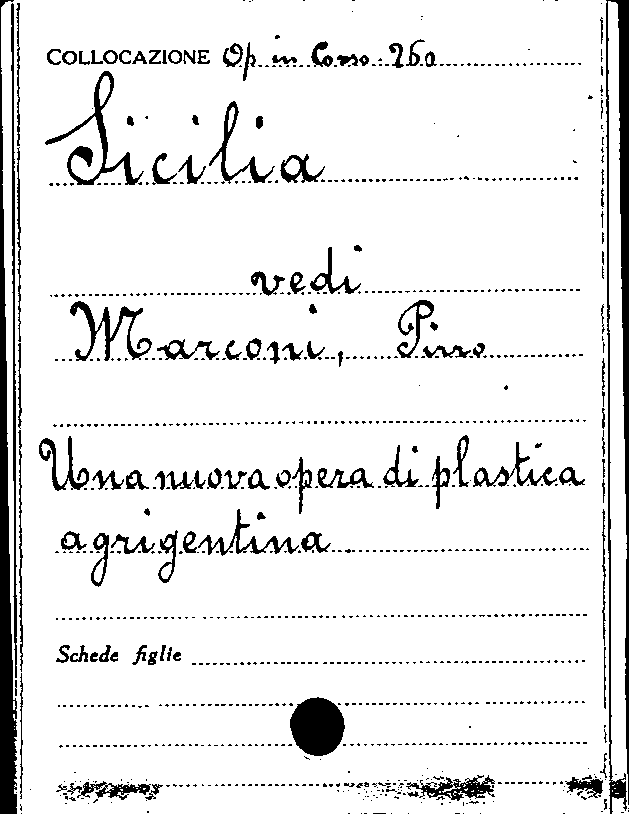 COLLOCAZIONE Op. in Corso. 260
Sicilia
vedi
Marconi, Pirro
Una nuova opera di plastica
agrigentina.
Schede figlie